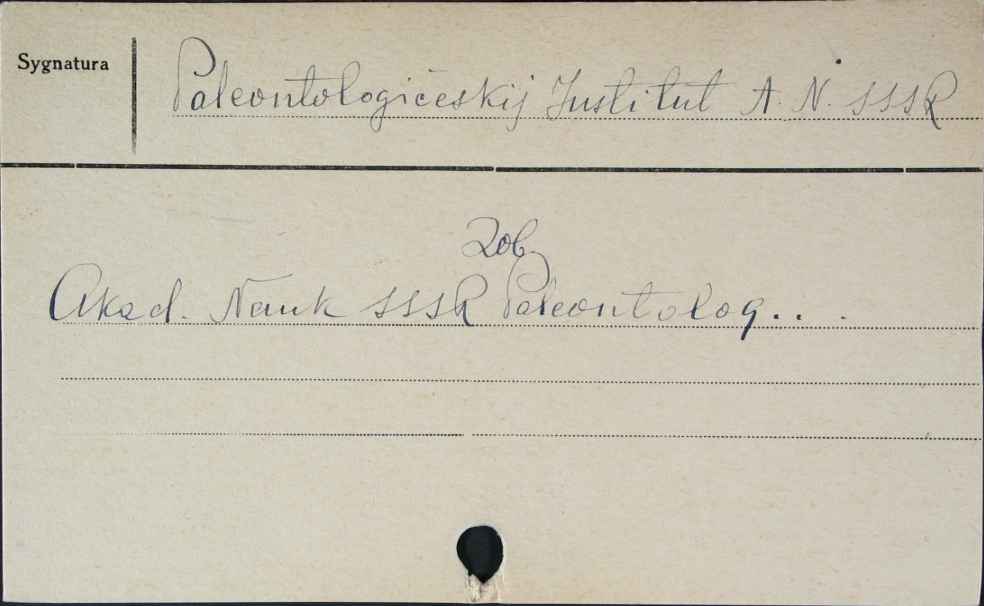 Sygnatura
Paleontologičeskij Institut A. N. SSSR
Zob.
Akad. Nauk SSSR Paleontolog...